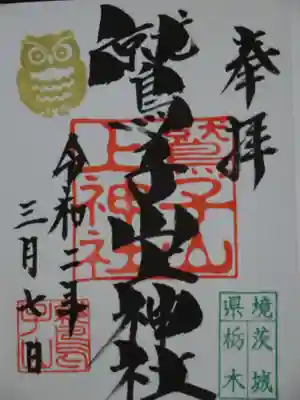 奉拝
鷲子山上神社
鷲子山
上神社
令和二年
三月七日
境茨城
県栃木